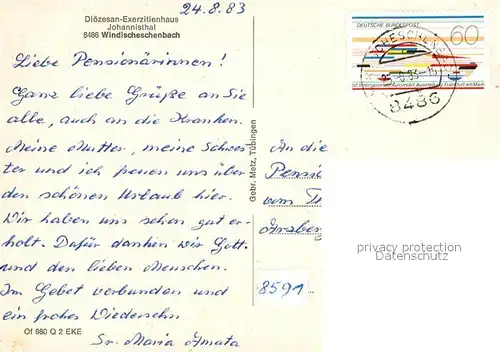 24.8.83
Diözesan-Exerzitienhaus
Johannisthal
8486 Windischeschenbach
Liebe Pensionärinnen!
Ganz liebe Grüße an Sie
alle, auch an die Kranken.
Meine Mutter, meine Schwes-
ter und ich freuen uns über
den schönen Urlaub hier.
Wir haben uns schon gut er-
holt. Dafür danken wir Gott
und den lieben Menschen.
Im Gebet verbunden und
ein frohes Wiedersehn
Sr. Maria Amata
Of 980 Q 2 EKE
Gebr. Metz, Tübingen
DEUTSCHE BUNDESPOST
60
8486
An die
Pensio
vom
Arzberg
8591
privacy protection
Datenschutz